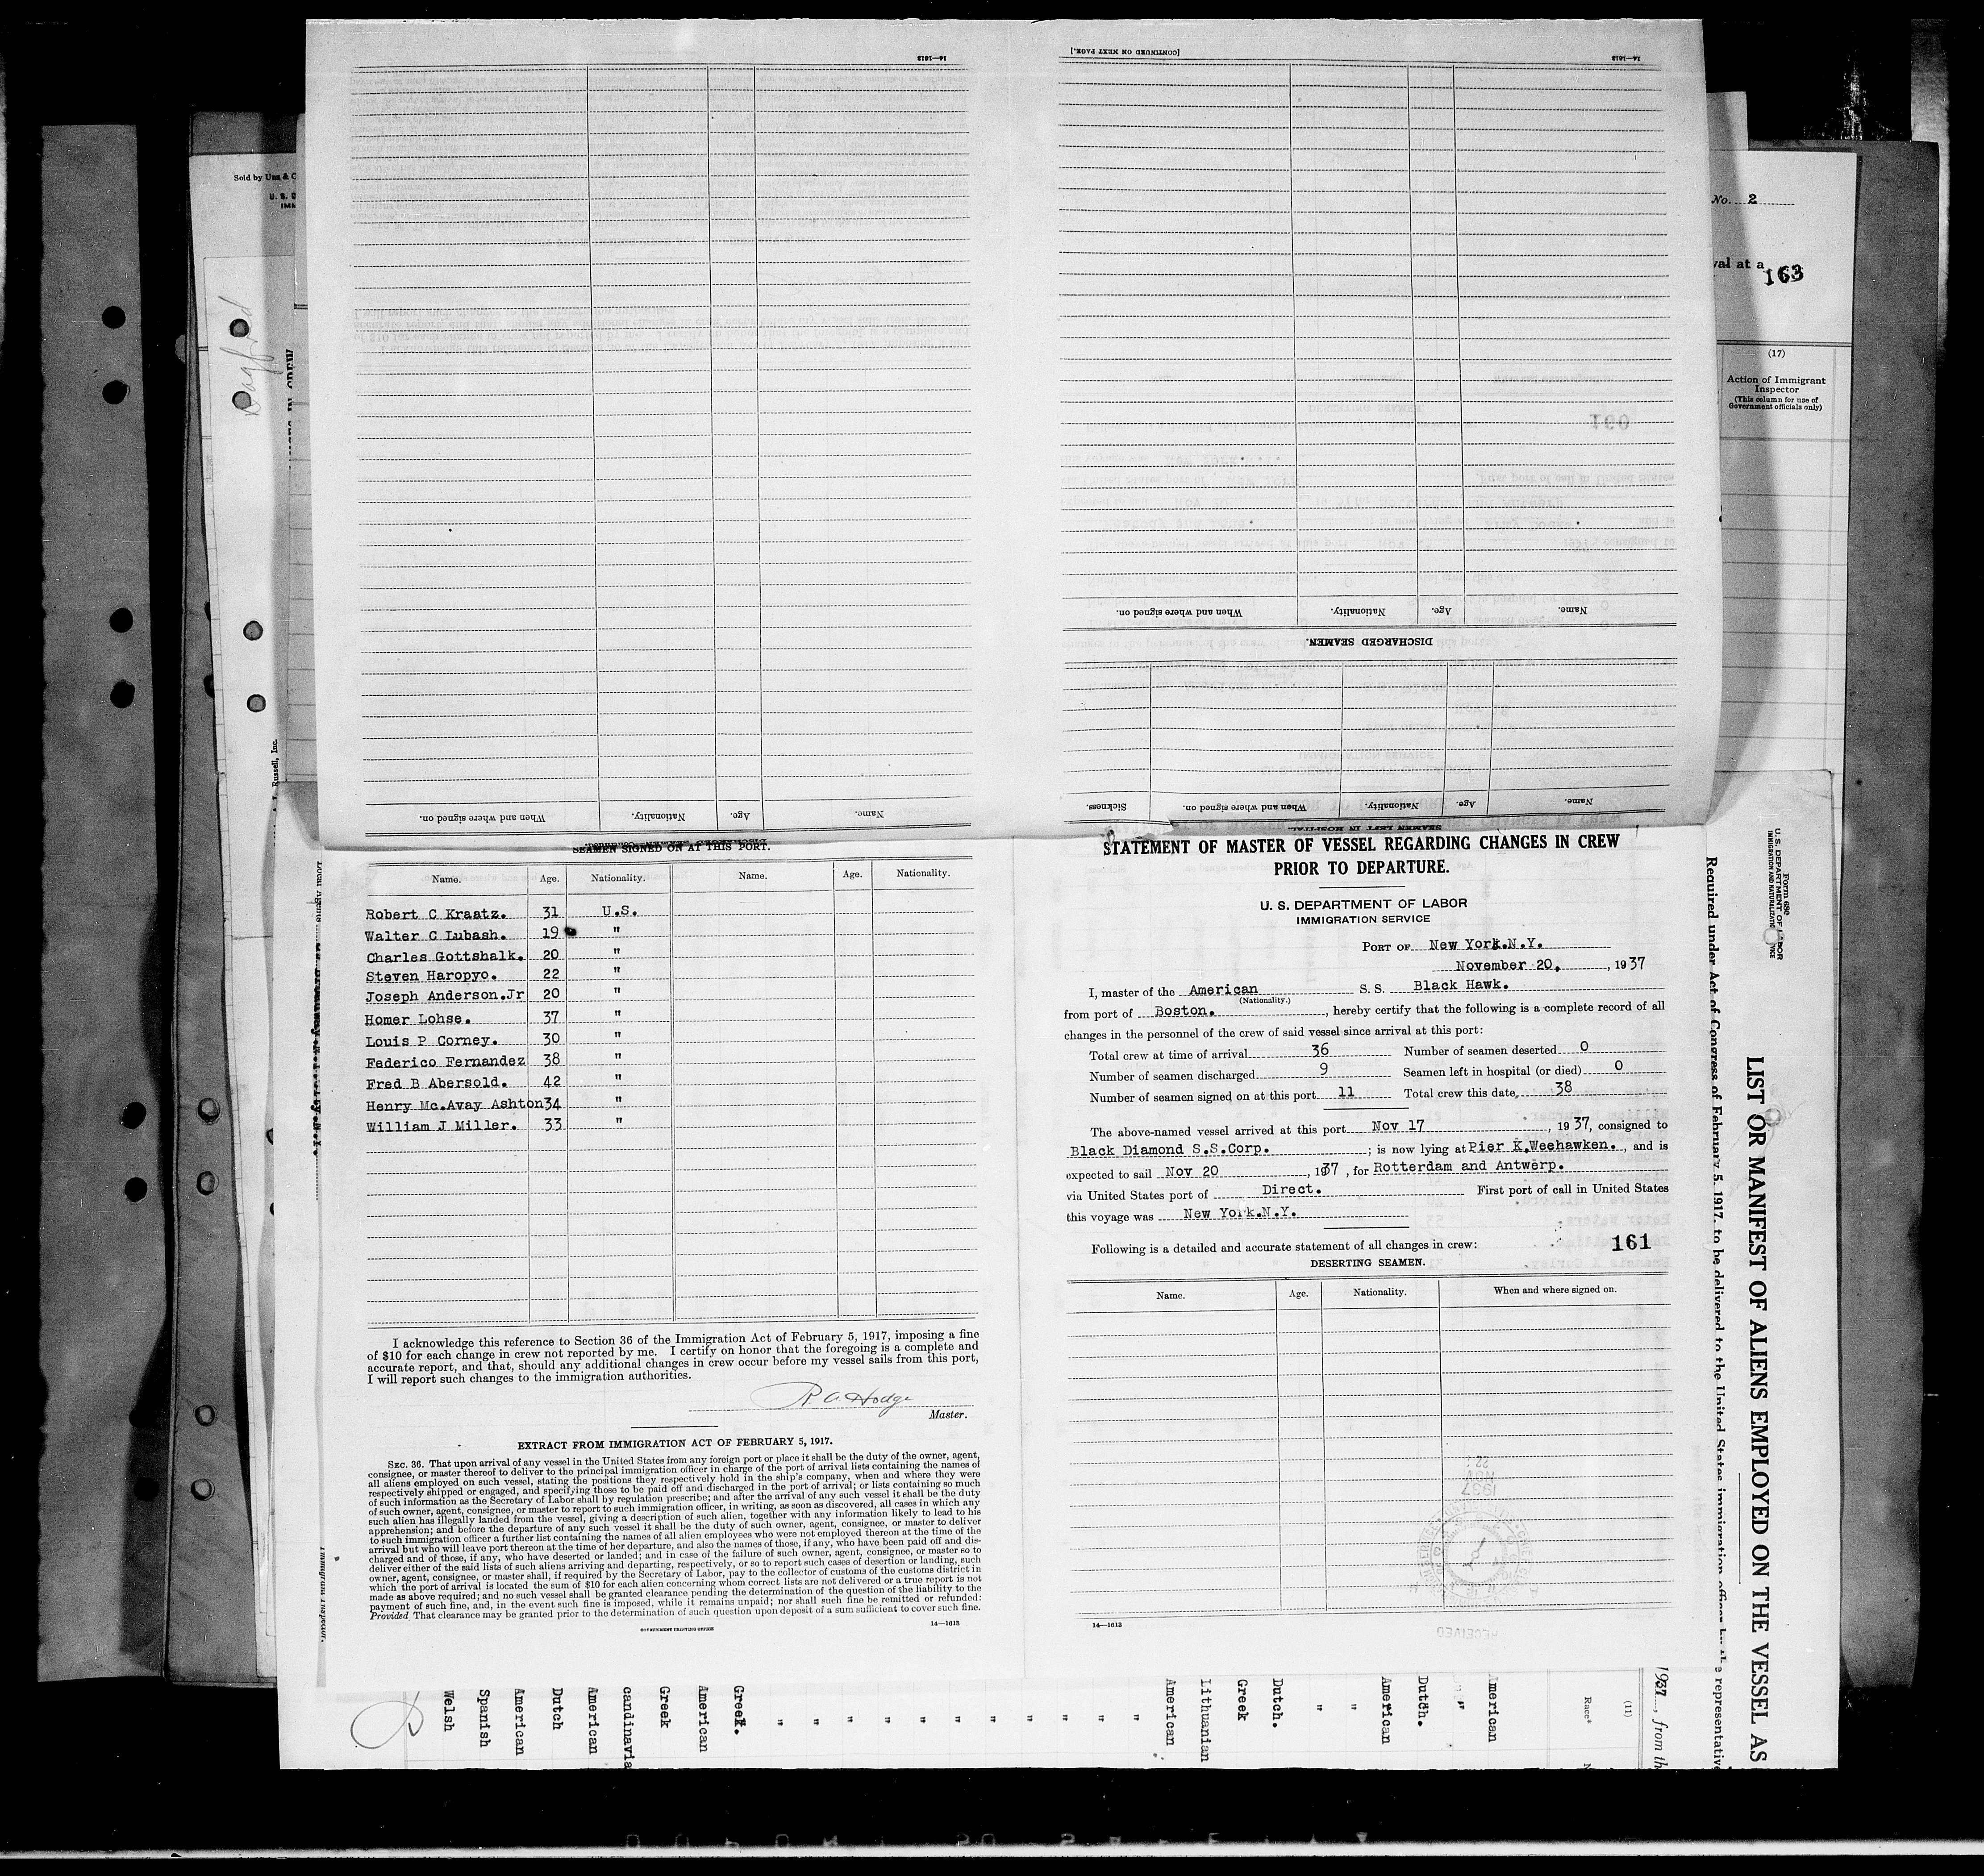 14—1613
[CONTINUED ON NEXT PAGE.]
14—1613
Name.
Age.
Nationality.
When and where signed on.
DISCHARGED SEAMEN.
Name.
Age.
Nationality.
When and where signed on.
Name.
Age.
Nationality.
When and where signed on.
Sickness.
SEAMEN LEFT IN HOSPITAL.
Sold by
U. S. D
IMM
Dagfred
Russell, Inc.
No. 2
val at a
163
(17)
Action of Immigrant
Inspector
(This column for use of
Government officials only)
SEAMEN SIGNED ON AT THIS PORT.
Name. Age. Nationality. Name. Age. Nationality.
Robert C Kraatz. 31 U.S.
Walter C Lubash. 19 "
Charles Gottshalk. 20 "
Steven Haropyo. 22 "
Joseph Anderson.Jr 20 "
Homer Lohse. 37 "
Louis P Corney. 30 "
Federico Fernandez 38 "
Fred B Abersold. 42 "
Henry Mc.Avay Ashton 34 "
William J Miller. 33 "
I acknowledge this reference to Section 36 of the Immigration Act of February 5, 1917, imposing a fine
of $10 for each change in crew not reported by me. I certify on honor that the foregoing is a complete and
accurate report, and that, should any additional changes in crew occur before my vessel sails from this port,
I will report such changes to the immigration authorities.
R A Hodge
Master.
EXTRACT FROM IMMIGRATION ACT OF FEBRUARY 5, 1917.
SEC. 36. That upon arrival of any vessel in the United States from any foreign port or place it shall be the duty of the owner, agent,
consignee, or master thereof to deliver to the principal immigration officer in charge of the port of arrival lists containing the names of
all aliens employed on such vessel, stating the positions they respectively hold in the ship's company, when and where they were
respectively shipped or engaged, and specifying those to be paid off and discharged in the port of arrival; or lists containing so much
of such information as the Secretary of Labor shall by regulation prescribe; and after the arrival of any such vessel it shall be the duty
of such owner, agent, consignee, or master to report to such immigration officer, in writing, as soon as discovered, all cases in which any
such alien has illegally landed from the vessel, giving a description of such alien, together with any information likely to lead to his
apprehension; and before the departure of any such vessel it shall be the duty of such owner, agent, consignee, or master to deliver
to such immigration officer a further list containing the names of all alien employees who were not employed thereon at the time of the
arrival but who will leave port thereon at the time of her departure, and also the names of those, if any, who have been paid off and dis-
charged and of those, if any, who have deserted or landed; and in case of the failure of such owner, agent, consignee, or master so to
deliver either of the said lists of such aliens arriving and departing, respectively, or so to report such cases of desertion or landing, such
owner, agent, consignee, or master shall, if required by the Secretary of Labor, pay to the collector of customs of the customs district in
which the port of arrival is located the sum of $10 for each alien concerning whom correct lists are not delivered or a true report is not
made as above required; and no such vessel shall be granted clearance pending the determination of the question of the liability to the
payment of such fine, and, in the event such fine is imposed, while it remains unpaid; nor shall such fine be remitted or refunded:
Provided That clearance may be granted prior to the determination of such question upon deposit of a sum sufficient to cover such fine.
GOVERNMENT PRINTING OFFICE
14—1613
STATEMENT OF MASTER OF VESSEL REGARDING CHANGES IN CREW
PRIOR TO DEPARTURE.
U. S. DEPARTMENT OF LABOR
IMMIGRATION SERVICE
PORT OF New York.N.Y.
November 20, , 1937
I, master of the American S. S. Black Hawk.
(Nationality.)
from port of Boston. , hereby certify that the following is a complete record of all
changes in the personnel of the crew of said vessel since arrival at this port:
Total crew at time of arrival 36 Number of seamen deserted 0
Number of seamen discharged 9 Seamen left in hospital (or died) 0
Number of seamen signed on at this port 11 Total crew this date, 38
The above-named vessel arrived at this port Nov 17 , 1937, consigned to
Black Diamond S.S.Corp. ; is now lying at Pier K.Weehawken. , and is
expected to sail Nov 20 , 1937 , for Rotterdam and Antwerp.
via United States port of Direct. First port of call in United States
this voyage was New York.N.Y.
Following is a detailed and accurate statement of all changes in crew: 161
DESERTING SEAMEN.
Name. Age. Nationality. When and where signed on.
14—1613
RECEIVED
Form 680
U. S. DEPARTMENT OF LABOR
IMMIGRATION AND NATURALIZATION SERVICE
LIST OR MANIFEST OF ALIENS EMPLOYED ON THE VESSEL AS
Required under Act of Congress of February 5, 1917, to be delivered to the United States immigration officer by the representative
1937, from th
(11)
Race*
American
"
Dutch.
American
"
"
Dutch.
Greek
Lithuanian
American
"
"
"
"
"
"
"
"
"
"
"
Greek.
American
Greek
candinavia
American
Dutch
American
Spanish
Welsh
Immigrant Inspector.